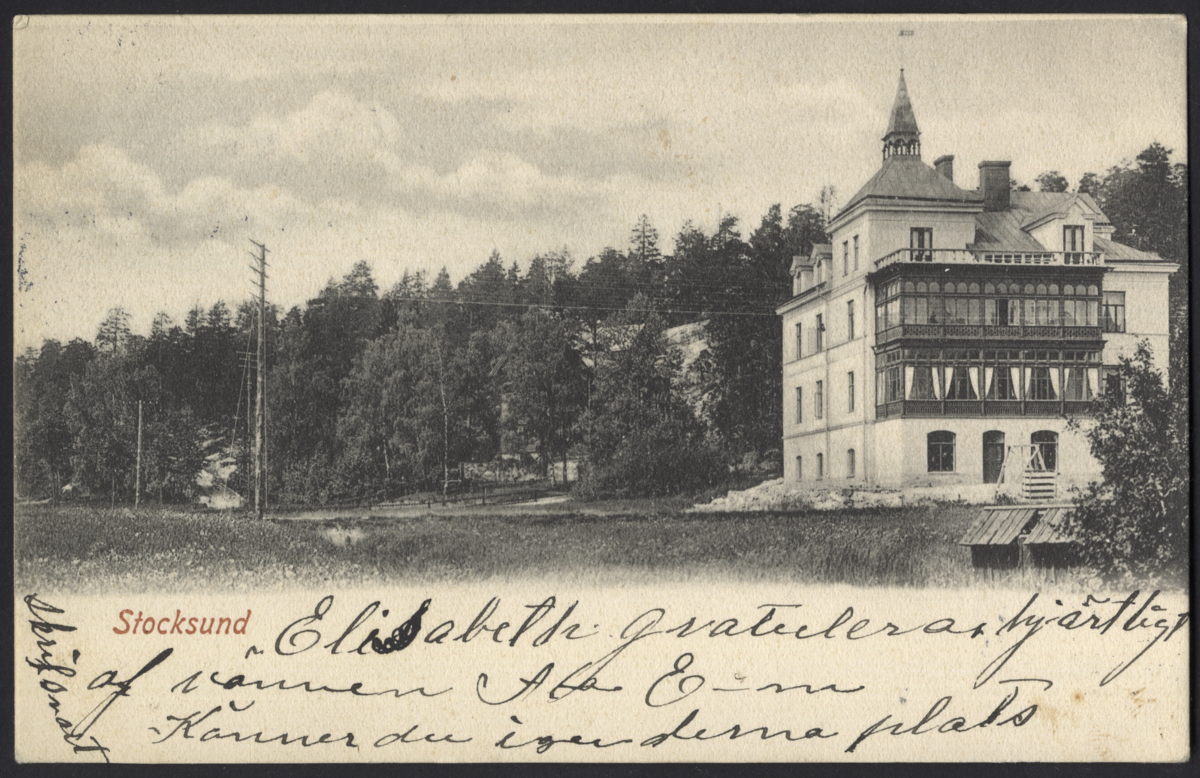 Stocksund
Elisabeth gratuleras hjärtligt
af vännen Ada E-m
Känner du igen denna plats
skrif snart